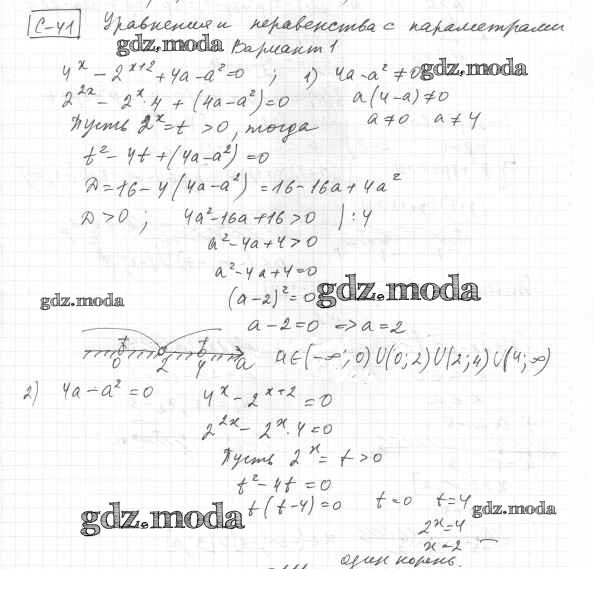 С-41 Уравнения и неравенства с параметрами
gdz.moda Вариант 1
4^x - 2^{x+2} + 4a - a² = 0 ; 1) 4a - a² ≠ 0 gdz.moda
2^{2x} - 2^x · 4 + (4a - a²) = 0 a(4 - a) ≠ 0
Пусть 2^x = t > 0, тогда a ≠ 0 a ≠ 4
t² - 4t + (4a - a²) = 0
D = 16 - 4(4a - a²) = 16 - 16a + 4a²
D > 0 ; 4a² - 16a + 16 > 0 | : 4
a² - 4a + 4 > 0
a² - 4a + 4 = 0
gdz.moda (a - 2)² = 0 gdz.moda
a - 2 = 0 => a = 2
+ +
0 2 4 a a ∈ (-∞; 0) U (0; 2) U (2; 4) U (4; ∞)
2) 4a - a² = 0 4^x - 2^{x+2} = 0
2^{2x} - 2^x · 4 = 0
Пусть 2^x = t > 0
t² - 4t = 0
gdz.moda t(t - 4) = 0 t = 0 t = 4 gdz.moda
2^x = 4
x = 2
один корень.